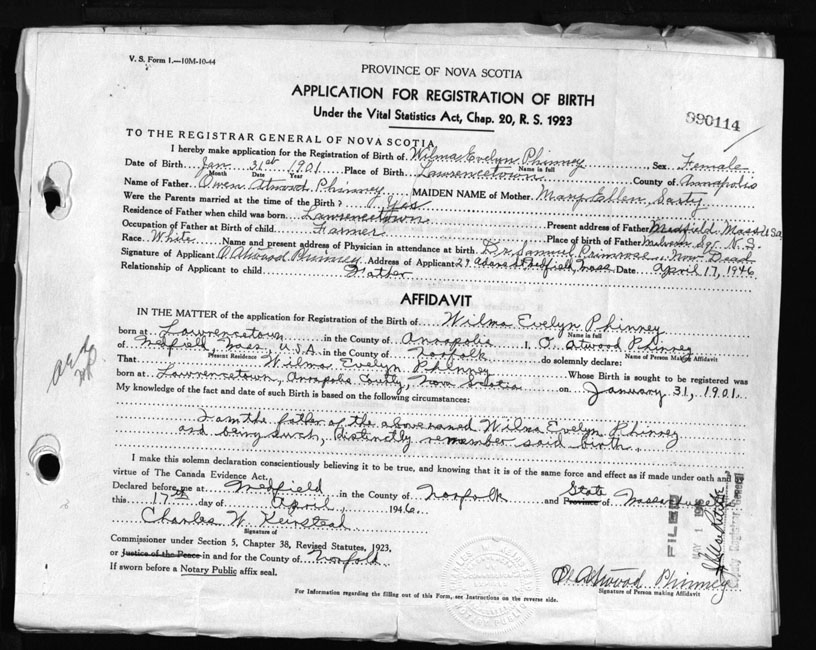 V. S. Form 1.—10M-10-44
PROVINCE OF NOVA SCOTIA
APPLICATION FOR REGISTRATION OF BIRTH
Under the Vital Statistics Act, Chap. 20, R. S. 1923
990114
TO THE REGISTRAR GENERAL OF NOVA SCOTIA
I hereby make application for the Registration of Birth of Wilma Evelyn Phinney Sex Female
Name in full
Date of Birth Jan 31st 1901 Place of Birth Lawrencetown County of Annapolis
Month Date Year
Name of Father Owen Atwood Phinney MAIDEN NAME of Mother Mary Ellen
Were the Parents married at the time of the Birth? Yes
Residence of Father when child was born Lawrencetown Present address of Father Medfield Mass U Sa
Occupation of Father at Birth of child Farmer Place of birth of Father Sqr. N. S.
Race White Name and present address of Physician in attendance at birth Dr. Samuel Primrose Now Dead
Signature of Applicant O. Atwood Phinney Address of Applicant 29 Adams St Medfield Mass Date April 17, 1946
Relationship of Applicant to child Father
AFFIDAVIT
IN THE MATTER of the application for Registration of the Birth of Wilma Evelyn Phinney
Name in full
born at Lawrencetown in the County of Annapolis I, O. Atwood Phinney
Name of Person Making Affidavit
of Medfield, Mass, U.S.A. in the County of Norfolk do solemnly declare:
Present Residence
That Wilma Evelyn Phinney Whose Birth is sought to be registered was
born at Lawrencetown, Annapolis County, Nova Scotia on January 31, 1901.
My knowledge of the fact and date of such Birth is based on the following circumstances:
I am the father of the above named Wilma Evelyn Phinney
and being such, distinctly remember said birth.
I make this solemn declaration conscientiously believing it to be true, and knowing that it is of the same force and effect as if made under oath and
virtue of The Canada Evidence Act,
Declared before me at Medfield in the County of Norfolk and Province of State Massachusetts
this 17th day of April, 1946
Charles W. Keirstead
Signature of
Commissioner under Section 5, Chapter 38, Revised Statutes, 1923,
or Justice of the Peace in and for the County of Norfolk
If sworn before a Notary Public affix seal.
FILED
O. Atwood Phinney
Signature of Person making Affidavit
For Information regarding the filling out of this Form, see Instructions on the reverse side.